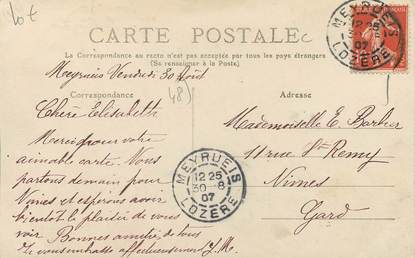 Lot
CARTE POSTALE
La Correspondance au recto n'est pas acceptée par tous les pays étrangers
(Se renseigner à la Poste)
Meyrueis Vendredi 30 Août
(48)
Correspondance
Adresse
Chère Elisabeth
Merci pour votre
aimable carte. Nous
partons demain pour
Nîmes et espérons avoir
bientôt le plaisir de vous
voir Bonnes amitiés de tous
Je vous embrasse affectueusement
Mademoiselle E. Barbier
11 rue St Remy
Nîmes
Gard
MEYRUEIS
12 25
30 -8
07
LOZERE
MEYRUEIS
12 25
07
LOZERE